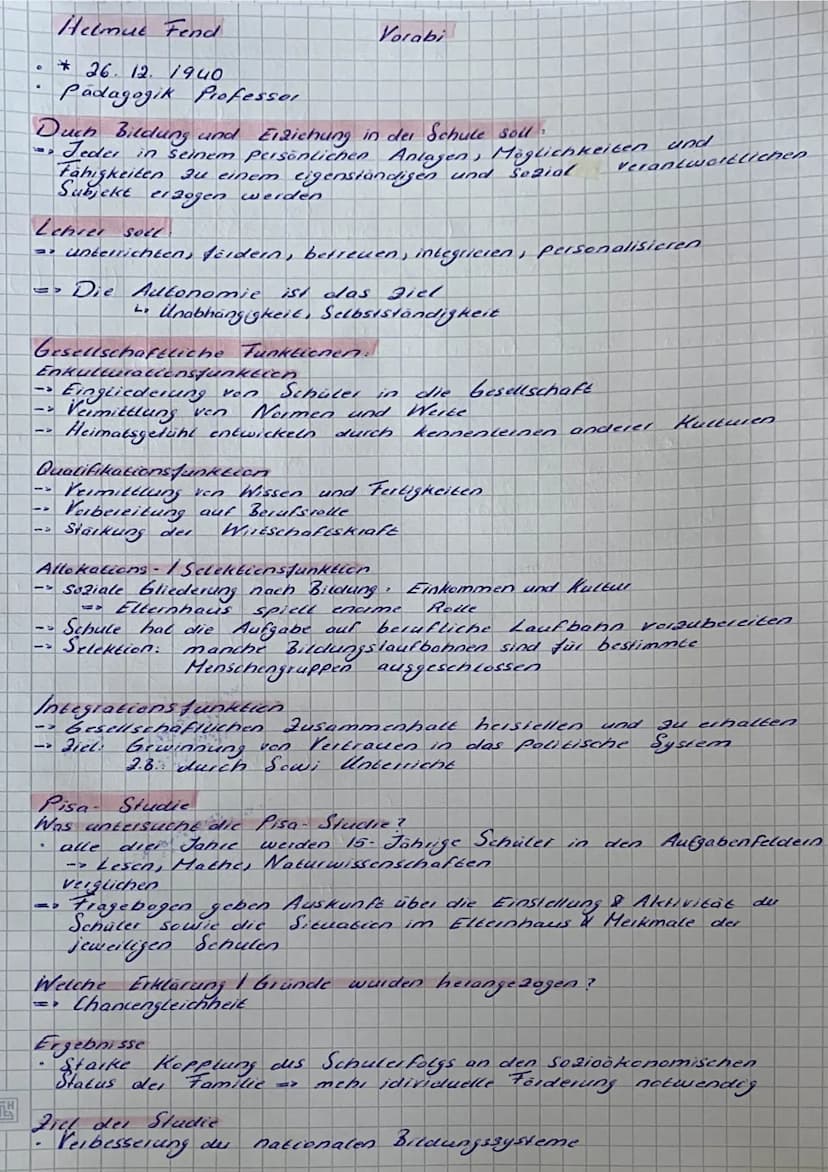 Helmut Fend Vorabi
• * 26. 12. 1940
• Pädagogik Professor
Duch Bildung und Erziehung in der Schule soll:
=> Jeder in seinem persönlichen Anlagen, Möglichkeiten und
Fähigkeiten zu einem eigenständigen und sozial verantwortlichen
Subjekt erzogen werden
Lehrer soll:
=> unterrichten, fördern, betreuen, integrieren, personalisieren
=> Die Autonomie ist das Ziel
↳ Unabhängigkeit, Selbstständigkeit
Gesellschaftliche Funktionen:
Enkulturationsfunktion
-> Eingliederung von Schüler in die Gesellschaft
-> Vermittlung von Normen und Werte
-> Heimatsgefühl entwickeln durch kennenlernen anderer Kulturen
Qualifikationsfunktion
-> Vermittlung von Wissen und Fertigkeiten
-> Vorbereitung auf Berufsrolle
-> Stärkung der Wirtschaftskraft
Allokations-/Selektionsfunktion
-> soziale Gliederung nach Bildung, Einkommen und Kultur
=> Elternhaus spielt enorme Rolle
-> Schule hat die Aufgabe auf berufliche Laufbahn vorzubereiten
-> Selektion: manche Bildungslaufbahnen sind für bestimmte
Menschengruppen ausgeschlossen
Integrationsfunktion
-> Gesellschaftlichen Zusammenhalt herstellen und zu erhalten
-> Ziel: Gewinnung von Vertrauen in das politische System
z.B. durch Sowi Unterricht
Pisa-Studie
Was untersucht die Pisa-Studie?
• alle drei Jahre werden 15-Jährige Schüler in den Aufgabenfeldern
-> Lesen, Mathe, Naturwissenschaften
verglichen
=> Fragebogen geben Auskunft über die Einstellung & Aktivität der
Schüler sowie die Situation im Elternhaus & Merkmale der
jeweiligen Schulen
Welche Erklärung / Gründe wurden herangezogen?
=> Chancengleichheit
Ergebnisse
• Starke Kopplung des Schulerfolgs an den sozioökonomischen
Status der Familie => mehr idividuelle Förderung notwendig
Ziel der Studie
• Verbesserung der nationalen Bildungssysteme